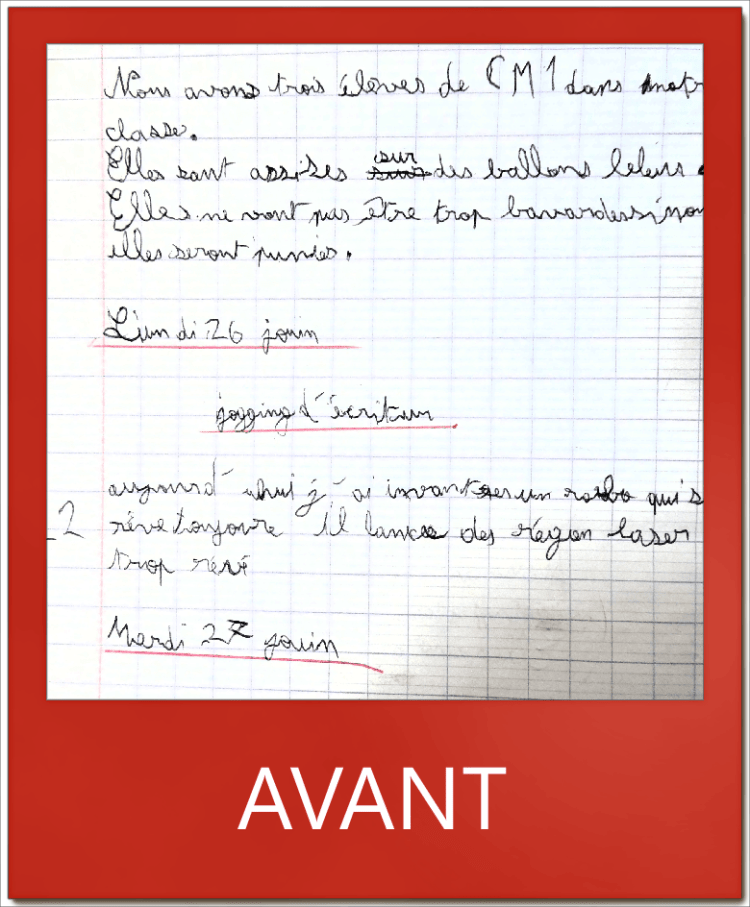 Nous avons trois élèves de CM1 dans notr
classe.
Elles sont assises sur des ballons
Elles ne vont pas être trop bavardes sinon
elles seront punies.
Lundi 26 jouin
jogging d'écritur
aujourd'uhui j'ai invanter un robo qui s
2
rêve toujoure il lance des régon laser
trop rêvé
Mardi 27 jouin
AVANT